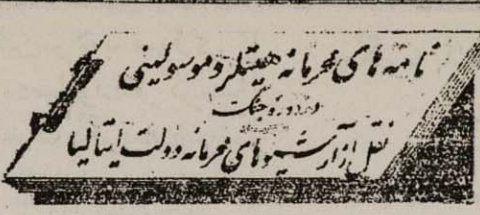 نامه های محرمانه هیتلر و موسولینی
در دوره جنگ
نقل از آرشیوهای محرمانه دولت ایتالیا